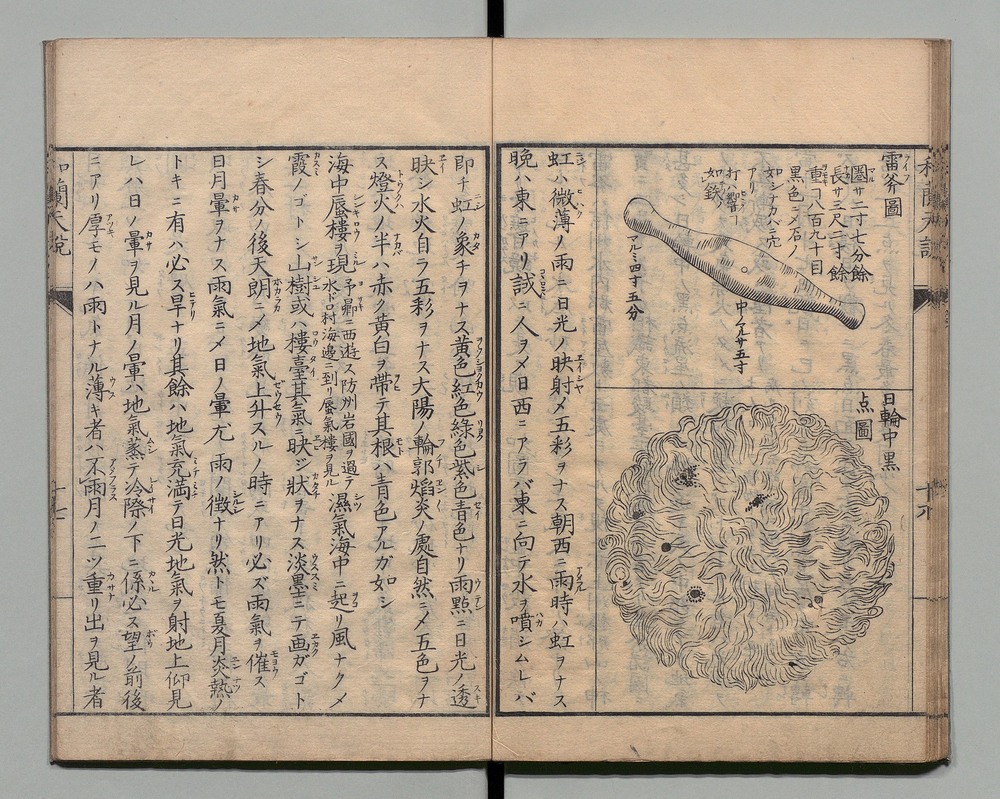 雷斧圖
圏サ二寸七分餘
長サ三尺二寸餘
重〆八百九十目
黒色ニ〆石ノ
如シナカバニ穴
アリ
打ハ響ヿ
如鉄
マルミ四寸五分
中クルサ五寸
日輪中黒
点圖
虹ハ微薄ノ雨ニ日光ノ映射〆五彩ヲナス朝西ニ雨時ハ虹ヲナス
晩ハ東ニアリ誠ニ人ヲ〆日西ニアラバ東ニ向テ水ヲ噴シムレバ
即チ虹ノ象チヲナス黄色紅色綠色紫色青色ナリ雨點ニ日光ノ透
映シ水火自ラ五彩ヲナス大陽ノ輪郭焰炎ノ處自然ニ〆五色ヲナ
ス燈火ノ半ハ赤ク黄白ヲ帶テ其根ハ青色アルガ如シ
海中蜃樓ヲ現 予曩ニ西遊ス防州岩國ヲ過テ
水ドロ村海邊ニ到リ蜃氣樓ヲ見ル 濕氣海中ニ起リ風ナク〆
霞ノゴトシ山樹或ハ樓臺其氣ニ映ジ狀ヲナス淡墨ニテ画ガゴト
シ春分ノ後天朗ニ〆地氣上升スルノ時ニアリ必ズ雨氣ヲ催ス
日月暈ヲナス雨氣ニ〆日ノ暈尤雨ノ徴ナリ然トモ夏月炎熱ノ
トキニ有ハ必ス旱ナリ其餘ハ地氣充満テ日光地氣ヲ射地上仰見
レハ日ノ暈ヲ見ル月ノ暈ハ地氣蒸テ冷際ノ下ニ係必ス望ノ前後
ニアリ厚モノハ雨トナル薄キ者ハ不雨月ノ二ツ重リ出ヲ見ル者
和蘭天説
十七